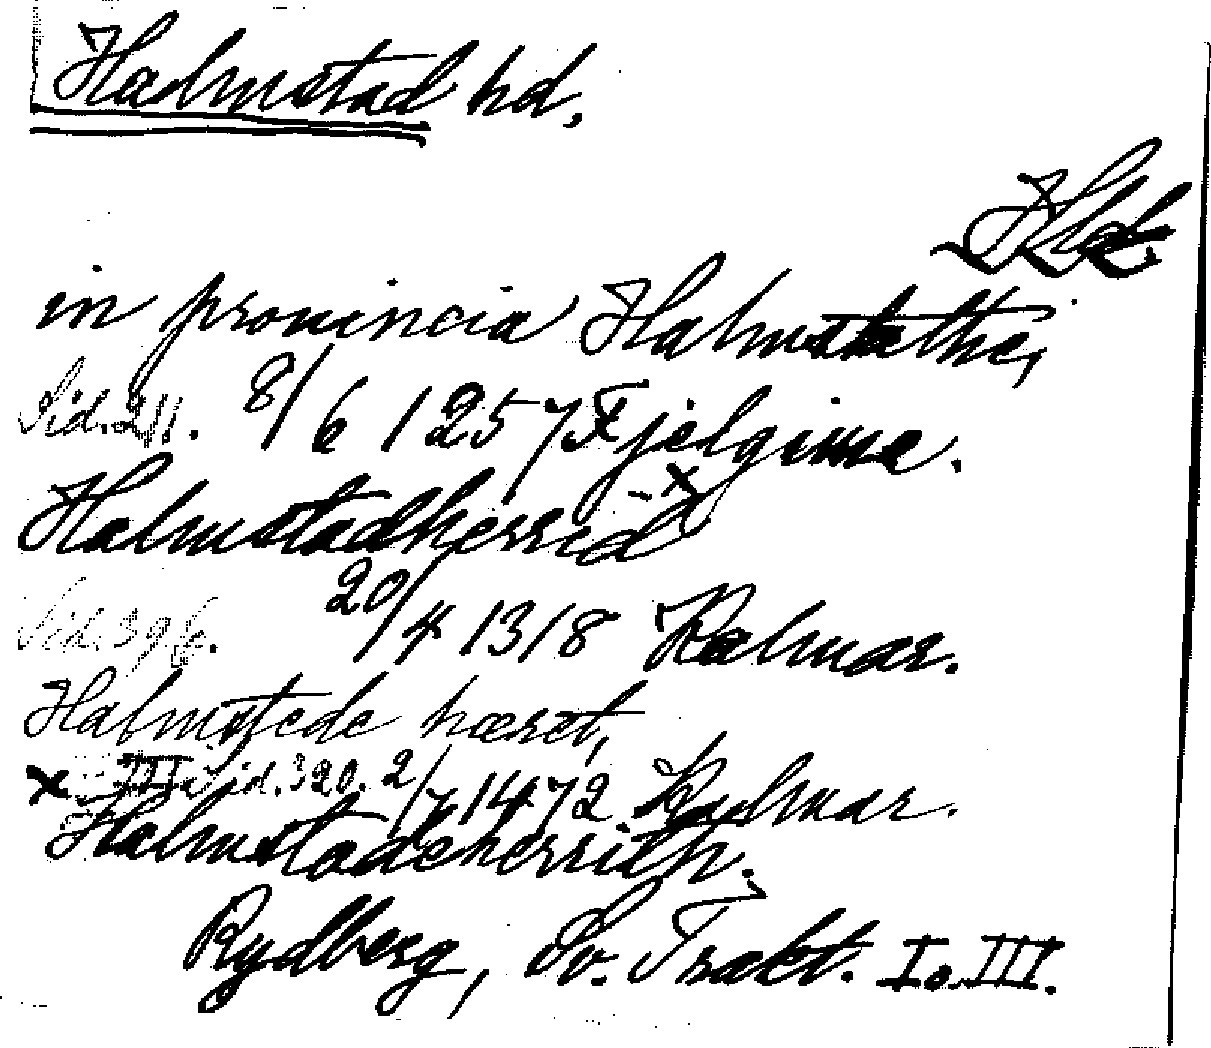 Halmstad hd,
Hld
in prouincia Halmstathe,
Sid. 211. 8/6 1257 Fjelginæ.
Halmstadherrid
Sid. 396. 20/4 1318 Kalmar.
Halmstede hæret,
x III Sid. 320. 2/7 1472 Kalmar.
Halmstadeherrith.
Rydberg, Sv. Trakt. I o. III.